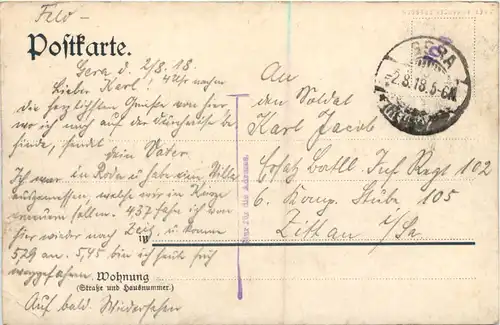 Feld-
Postkarte.
Gera d. 2/8. 18
Lieber Karl! 4 Uhr nachm
die herzlichsten Grüße von hier
wo ich mich auf der
finde, sendet
Dein Vater
Ich war in Roda u habe eine Villa
angesehen, welche wir in
sollen. 4.37 fahre ich von
hier wieder nach Zeitz, u komme
5.29 an. 5,45 bin ich heute früh
weggefahren.
W
Wohnung
(Straße und Hausnummer.)
Auf bald. Wiedersehen
Nur für die Adresse.
GERA
2.8.18.5-6N.
(REUSS)
An
den Soldat
Karl Jacob
Ersatz Batll. Inf Regt 102
6. Komp. Stube 105
Zittau i/Sa.